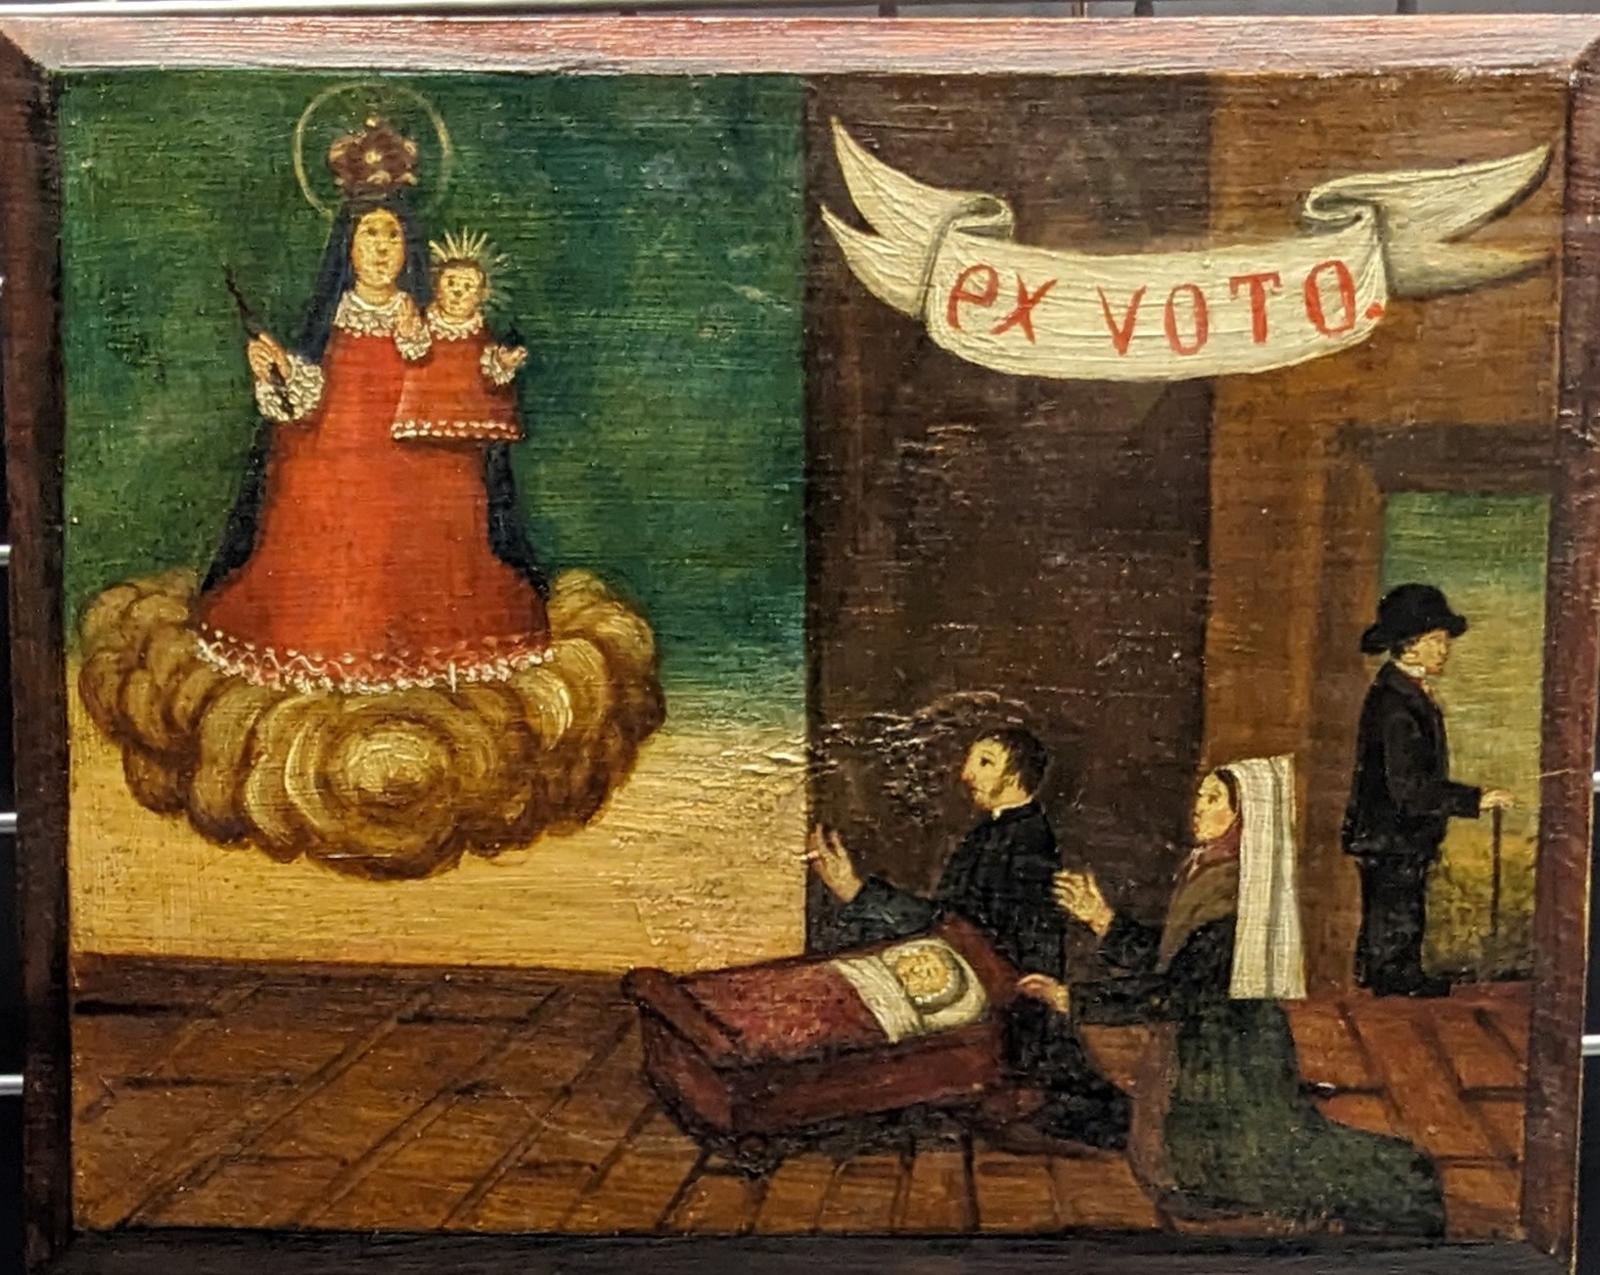 ex VOTO.